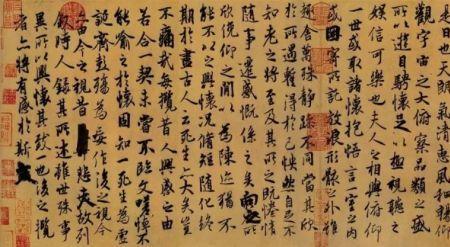 是日也天朗氣清惠風和暢仰
觀宇宙之大俯察品類之盛
所以遊目騁懷足以極視聽之
娛信可樂也夫人之相與俯仰
一世或取諸懷抱悟言一室之內
或因寄所託放浪形骸之外雖
趣舍萬殊靜躁不同當其欣
於所遇蹔得於己怏然自足不
知老之將至及其所之既惓情
隨事遷感慨係之矣向之所
欣俛仰之間以為陳迹猶不
能不以之興懷況脩短隨化終
期於盡古人云死生亦大矣豈
不痛哉每攬昔人興感之由
若合一契未嘗不臨文嗟悼不
能喻之於懷固知一死生為虛
誕齊彭殤為妄作後之視今
亦由今之視昔悲夫故列
敘時人錄其所述雖世殊事
異所以興懷其致一也後之攬
者亦將有感於斯文